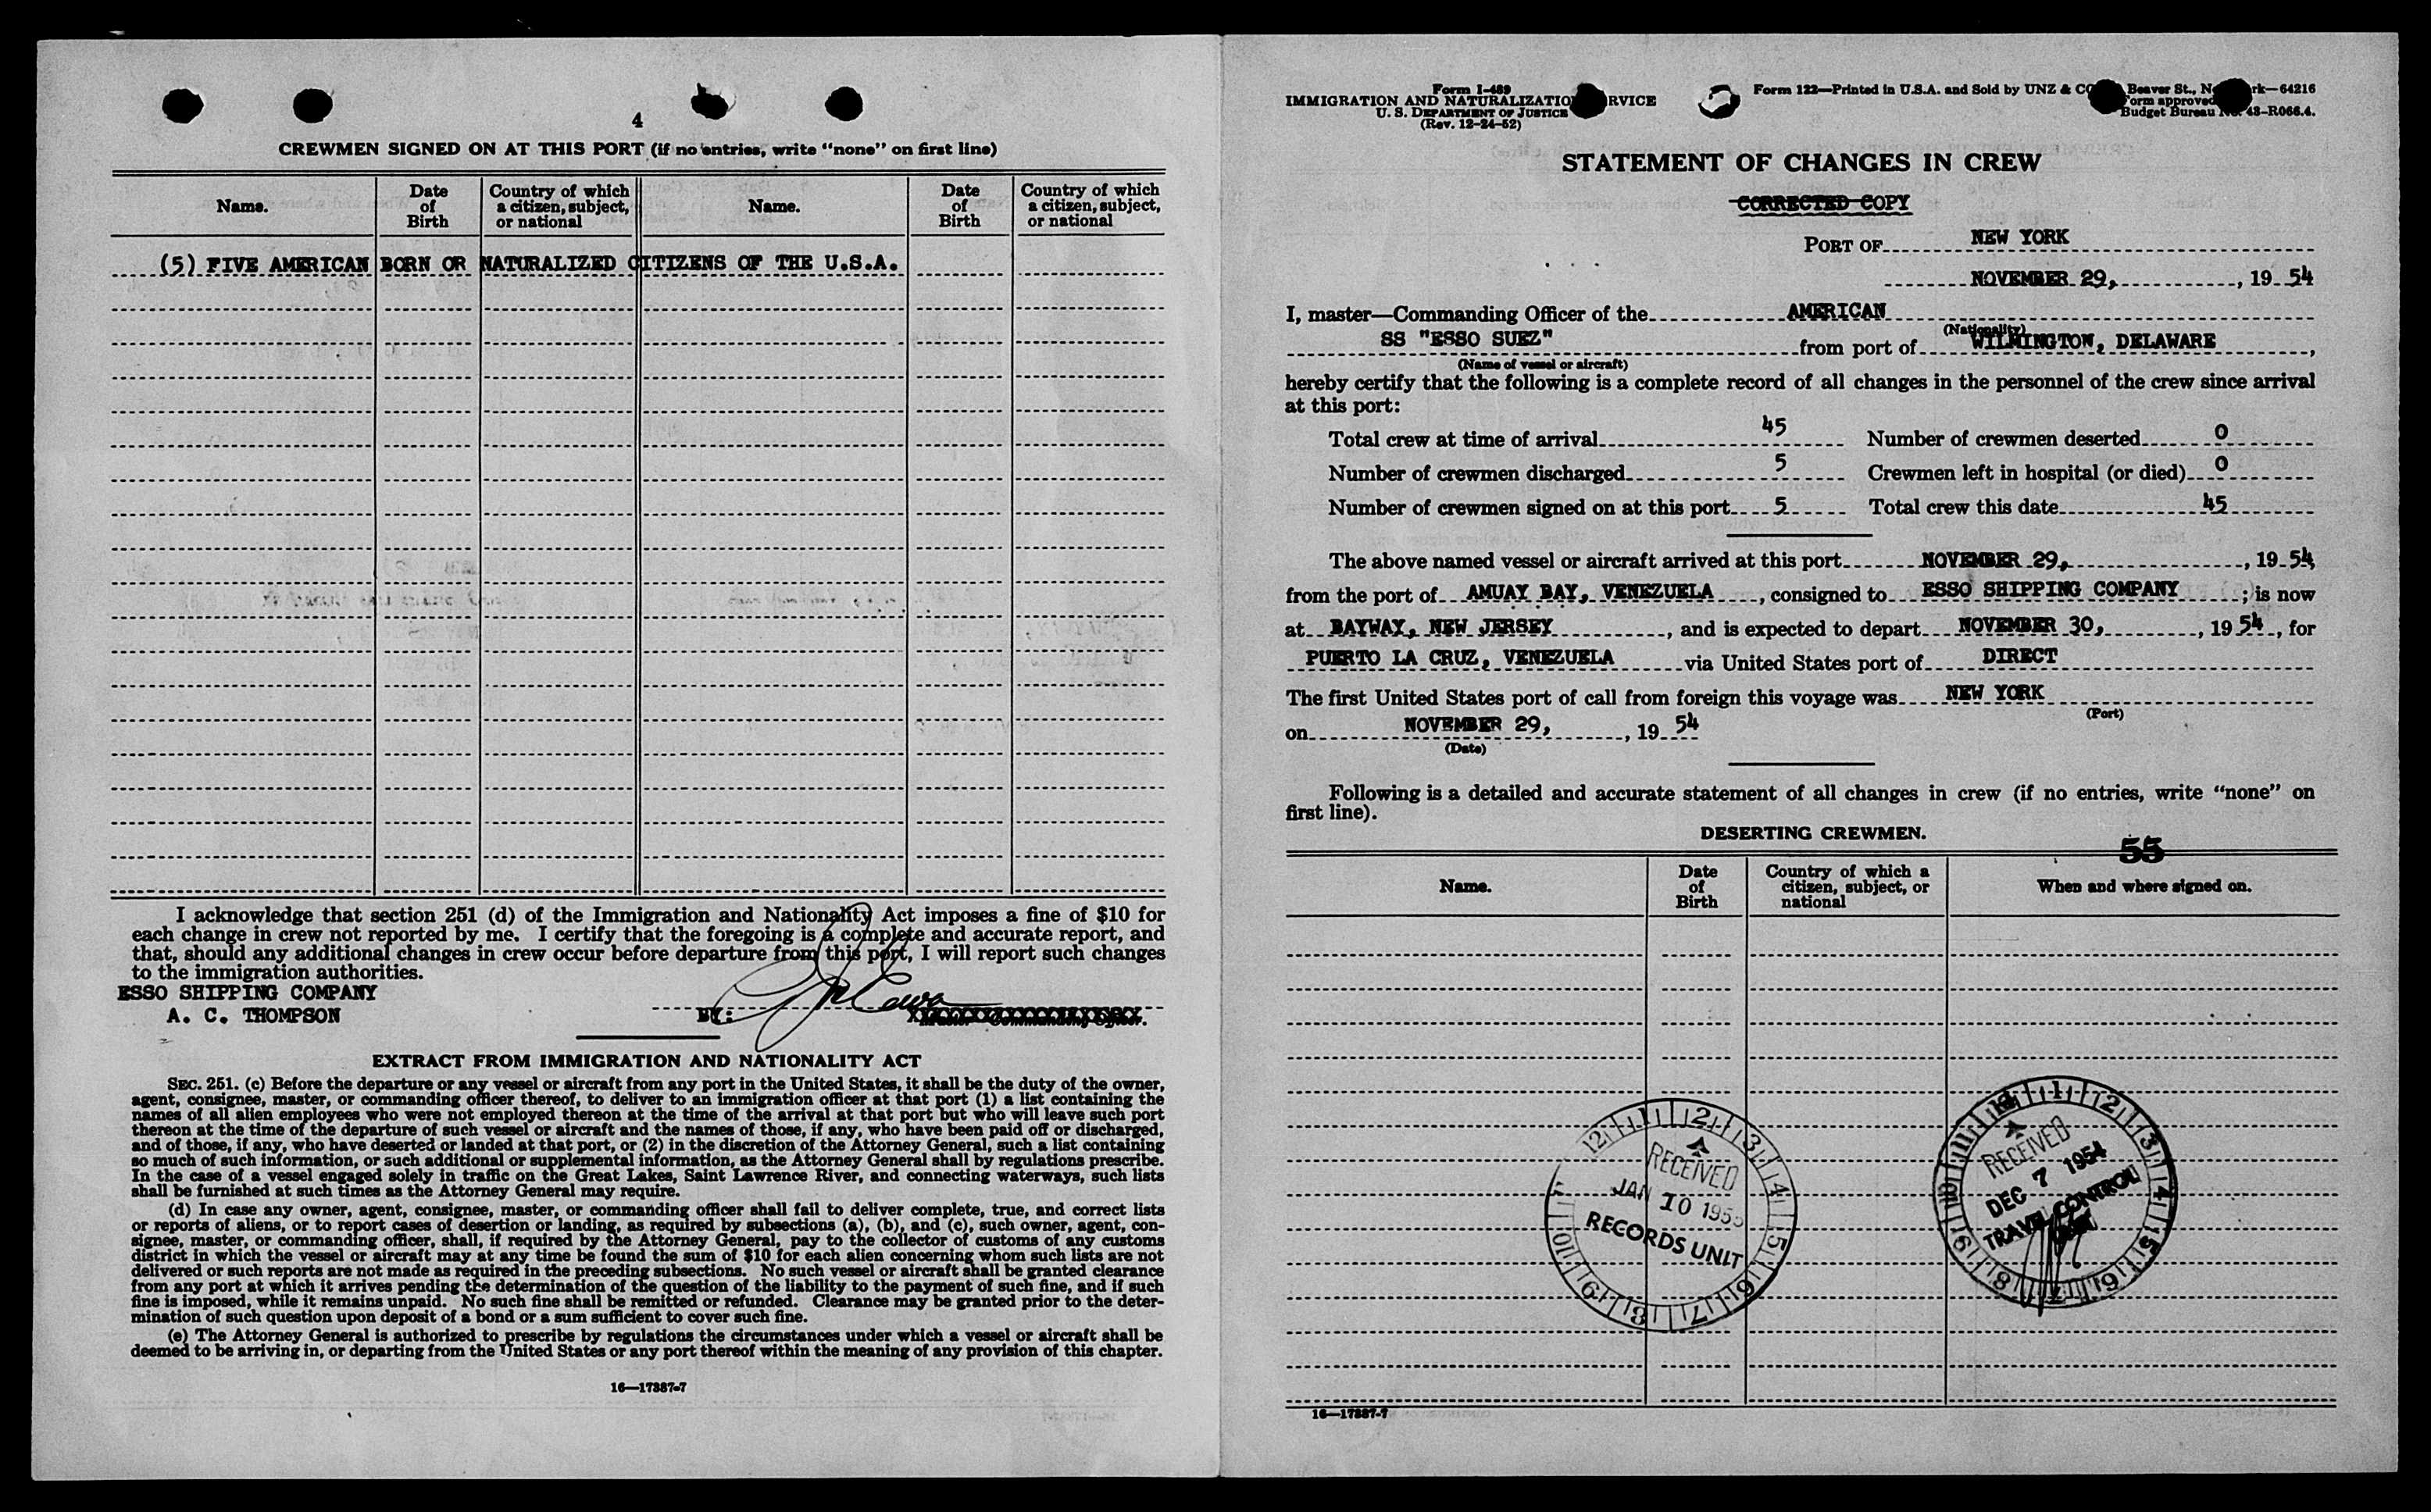 4
CREWMEN SIGNED ON AT THIS PORT (if no entries, write “none” on first line)
Name. Date of Birth Country of which a citizen, subject, or national Name. Date of Birth Country of which a citizen, subject, or national
(5) FIVE AMERICAN BORN OR NATURALIZED CITIZENS OF THE U.S.A.
I acknowledge that section 251 (d) of the Immigration and Nationality Act imposes a fine of $10 for
each change in crew not reported by me. I certify that the foregoing is a complete and accurate report, and
that, should any additional changes in crew occur before departure from this port, I will report such changes
to the immigration authorities.
ESSO SHIPPING COMPANY
A. C. THOMPSON BY:
EXTRACT FROM IMMIGRATION AND NATIONALITY ACT
SEC. 251. (c) Before the departure or any vessel or aircraft from any port in the United States, it shall be the duty of the owner,
agent, consignee, master, or commanding officer thereof, to deliver to an immigration officer at that port (1) a list containing the
names of all alien employees who were not employed thereon at the time of the arrival at that port but who will leave such port
thereon at the time of the departure of such vessel or aircraft and the names of those, if any, who have been paid off or discharged,
and of those, if any, who have deserted or landed at that port, or (2) in the discretion of the Attorney General, such a list containing
so much of such information, or such additional or supplemental information, as the Attorney General shall by regulations prescribe.
In the case of a vessel engaged solely in traffic on the Great Lakes, Saint Lawrence River, and connecting waterways, such lists
shall be furnished at such times as the Attorney General may require.
(d) In case any owner, agent, consignee, master, or commanding officer shall fail to deliver complete, true, and correct lists
or reports of aliens, or to report cases of desertion or landing, as required by subsections (a), (b), and (c), such owner, agent, con-
signee, master, or commanding officer, shall, if required by the Attorney General, pay to the collector of customs of any customs
district in which the vessel or aircraft may at any time be found the sum of $10 for each alien concerning whom such lists are not
delivered or such reports are not made as required in the preceding subsections. No such vessel or aircraft shall be granted clearance
from any port at which it arrives pending the determination of the question of the liability to the payment of such fine, and if such
fine is imposed, while it remains unpaid. No such fine shall be remitted or refunded. Clearance may be granted prior to the deter-
mination of such question upon deposit of a bond or a sum sufficient to cover such fine.
(e) The Attorney General is authorized to prescribe by regulations the circumstances under which a vessel or aircraft shall be
deemed to be arriving in, or departing from the United States or any port thereof within the meaning of any provision of this chapter.
16—17387-7
Form I-489
IMMIGRATION AND NATURALIZATIO RVICE
U. S. DEPARTMENT OF JUSTICE
(Rev. 12-24-52)
Form 122—Printed in U.S.A. and Sold by UNZ & CO Beaver St., N rk—64216
orm approved
Budget Bureau No. 43-R066.4.
STATEMENT OF CHANGES IN CREW
CORRECTED COPY
PORT OF NEW YORK
NOVEMBER 29, , 19 54
I, master—Commanding Officer of the AMERICAN
(Nationality)
SS "ESSO SUEZ" from port of WILMINGTON, DELAWARE ,
(Name of vessel or aircraft)
hereby certify that the following is a complete record of all changes in the personnel of the crew since arrival
at this port:
Total crew at time of arrival 45 Number of crewmen deserted 0
Number of crewmen discharged 5 Crewmen left in hospital (or died) 0
Number of crewmen signed on at this port 5 Total crew this date 45
The above named vessel or aircraft arrived at this port NOVEMBER 29, , 19 54
from the port of AMUAY BAY, VENEZUELA , consigned to ESSO SHIPPING COMPANY ; is now
at BAYWAY, NEW JERSEY , and is expected to depart NOVEMBER 30, , 19 54 , for
PUERTO LA CRUZ, VENEZUELA via United States port of DIRECT
The first United States port of call from foreign this voyage was NEW YORK
(Port)
on NOVEMBER 29, , 19 54
(Date)
Following is a detailed and accurate statement of all changes in crew (if no entries, write “none” on
first line).
DESERTING CREWMEN.
55
Name. Date of Birth Country of which a citizen, subject, or national When and where signed on.
12 1 2 3 4 5 6 7 8 9 10
RECEIVED
JAN 10 1955
RECORDS UNIT
12 1 2 3 4 5 6 7 8 9 10 11
RECEIVED
DEC 7 1954
TRAVEL CONTROL
16—17387-7